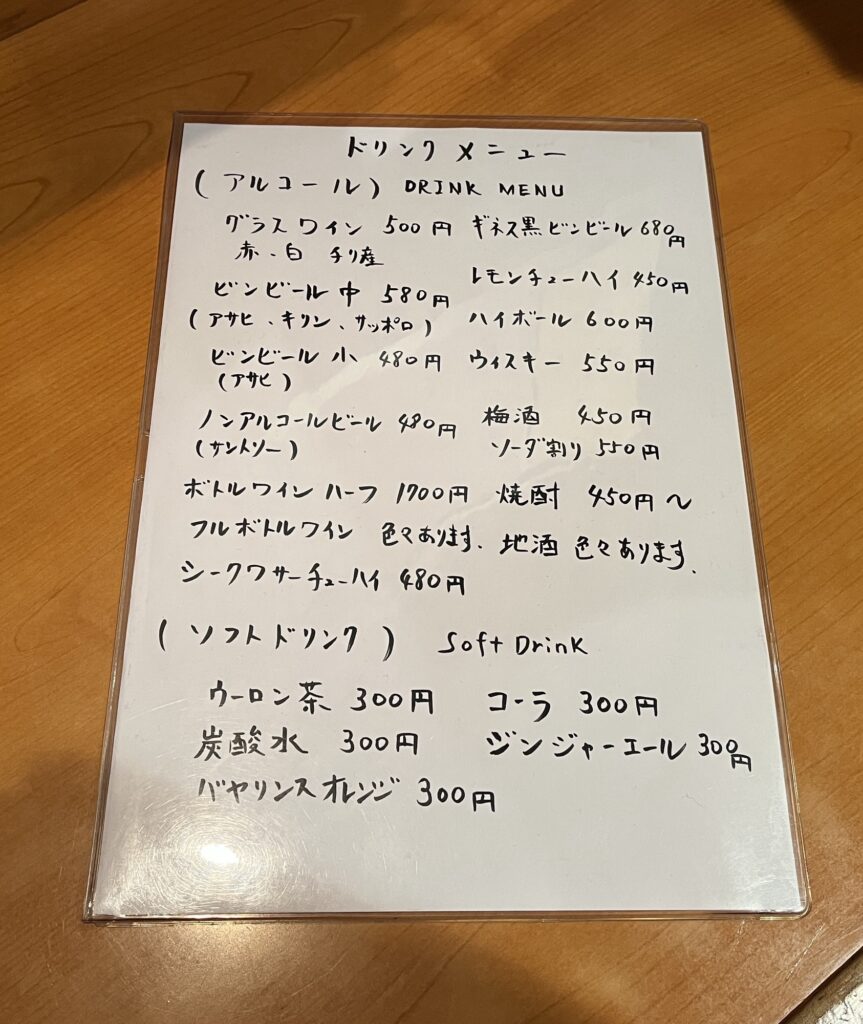 ドリンクメニュー
(アルコール) DRINK MENU
グラスワイン 500円
赤、白 チリ産
ビンビール 中 580円
(アサヒ、キリン、サッポロ)
ビンビール 小 480円
(アサヒ)
ノンアルコールビール 480円
(サントリー)
ボトルワイン ハーフ 1700円
フルボトルワイン 色々あります.
シークワサーチューハイ 480円
ギネス黒ビンビール 680円
レモンチューハイ 450円
ハイボール 600円
ウィスキー 550円
梅酒 450円
ソーダ割り 550円
焼酎 450円〜
地酒 色々あります.
(ソフトドリンク) Soft Drink
ウーロン茶 300円
炭酸水 300円
バヤリンスオレンジ 300円
コーラ 300円
ジンジャーエール 300円